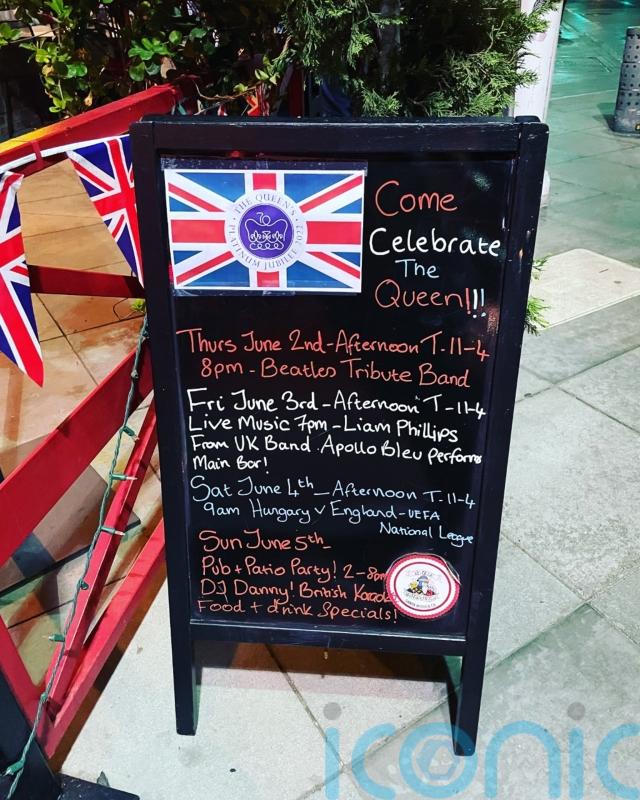 THE QUEEN'S
70
PLATINUM JUBILEE
2022
Come
Celebrate
The
Queen!!!
Thurs June 2nd - Afternoon T. 11-4
8pm - Beatles Tribute Band
Fri June 3rd - Afternoon T - 11-4
Live Music 7pm - Liam Phillips
From UK Band Apollo Bleu performs
Main Bar!
Sat June 4th - Afternoon T. 11-4
9am Hungary v England - UEFA
National League
Sun June 5th -
Pub + Patio Party! 2-8pm
DJ Danny! British
Food + drink Specials!
iconic